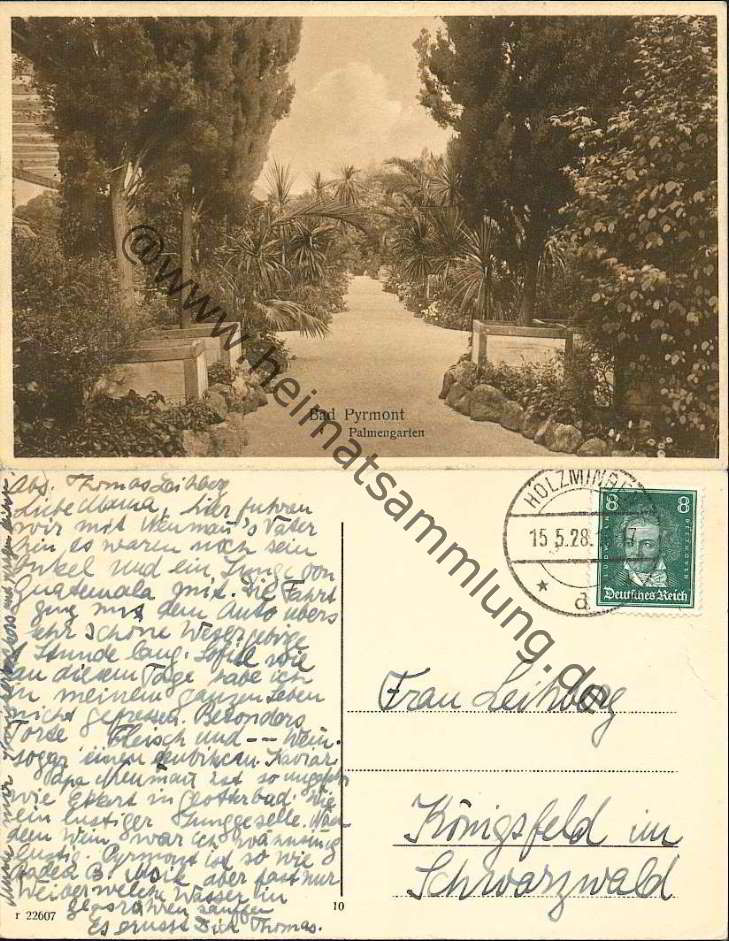 Bad Pyrmont
Palmengarten
@www.heimatsammlung.de
Abs. Thomas Leihberg
Liebe Mama, hier fuhren
wir mit Neumau's Vater
hin es waren noch sein
Onkel und ein Junge von
Guatemala mit. Die Fahrt
ging mit dem Auto übers
sehr schöne Wesergebirge
1 Stunde lang. Sofiel wie
an diesem Tage habe ich
in meinem ganzen Leben
nicht gefressen. Besonders
Torte Fleisch und -- Wein.
sogar einen Kaviar
Neumau ist so ungefähr
wie Ekart in Glotterbad. Wie
ein lustiger Junggeselle. Nach
dem Wein war ich
lustig. Pyrmont ist so wie
Baden B. aber fast nur
Weiber welche Wasser in
saufen
Es grüsst Dich Thomas.
r 22607
10
HOLZMINDEN
15.5.28. 17
d
8 8
LUDWIG V. BEETHOVEN
Deutsches Reich
Frau Leihberg
Königsfeld im
Schwarzwald